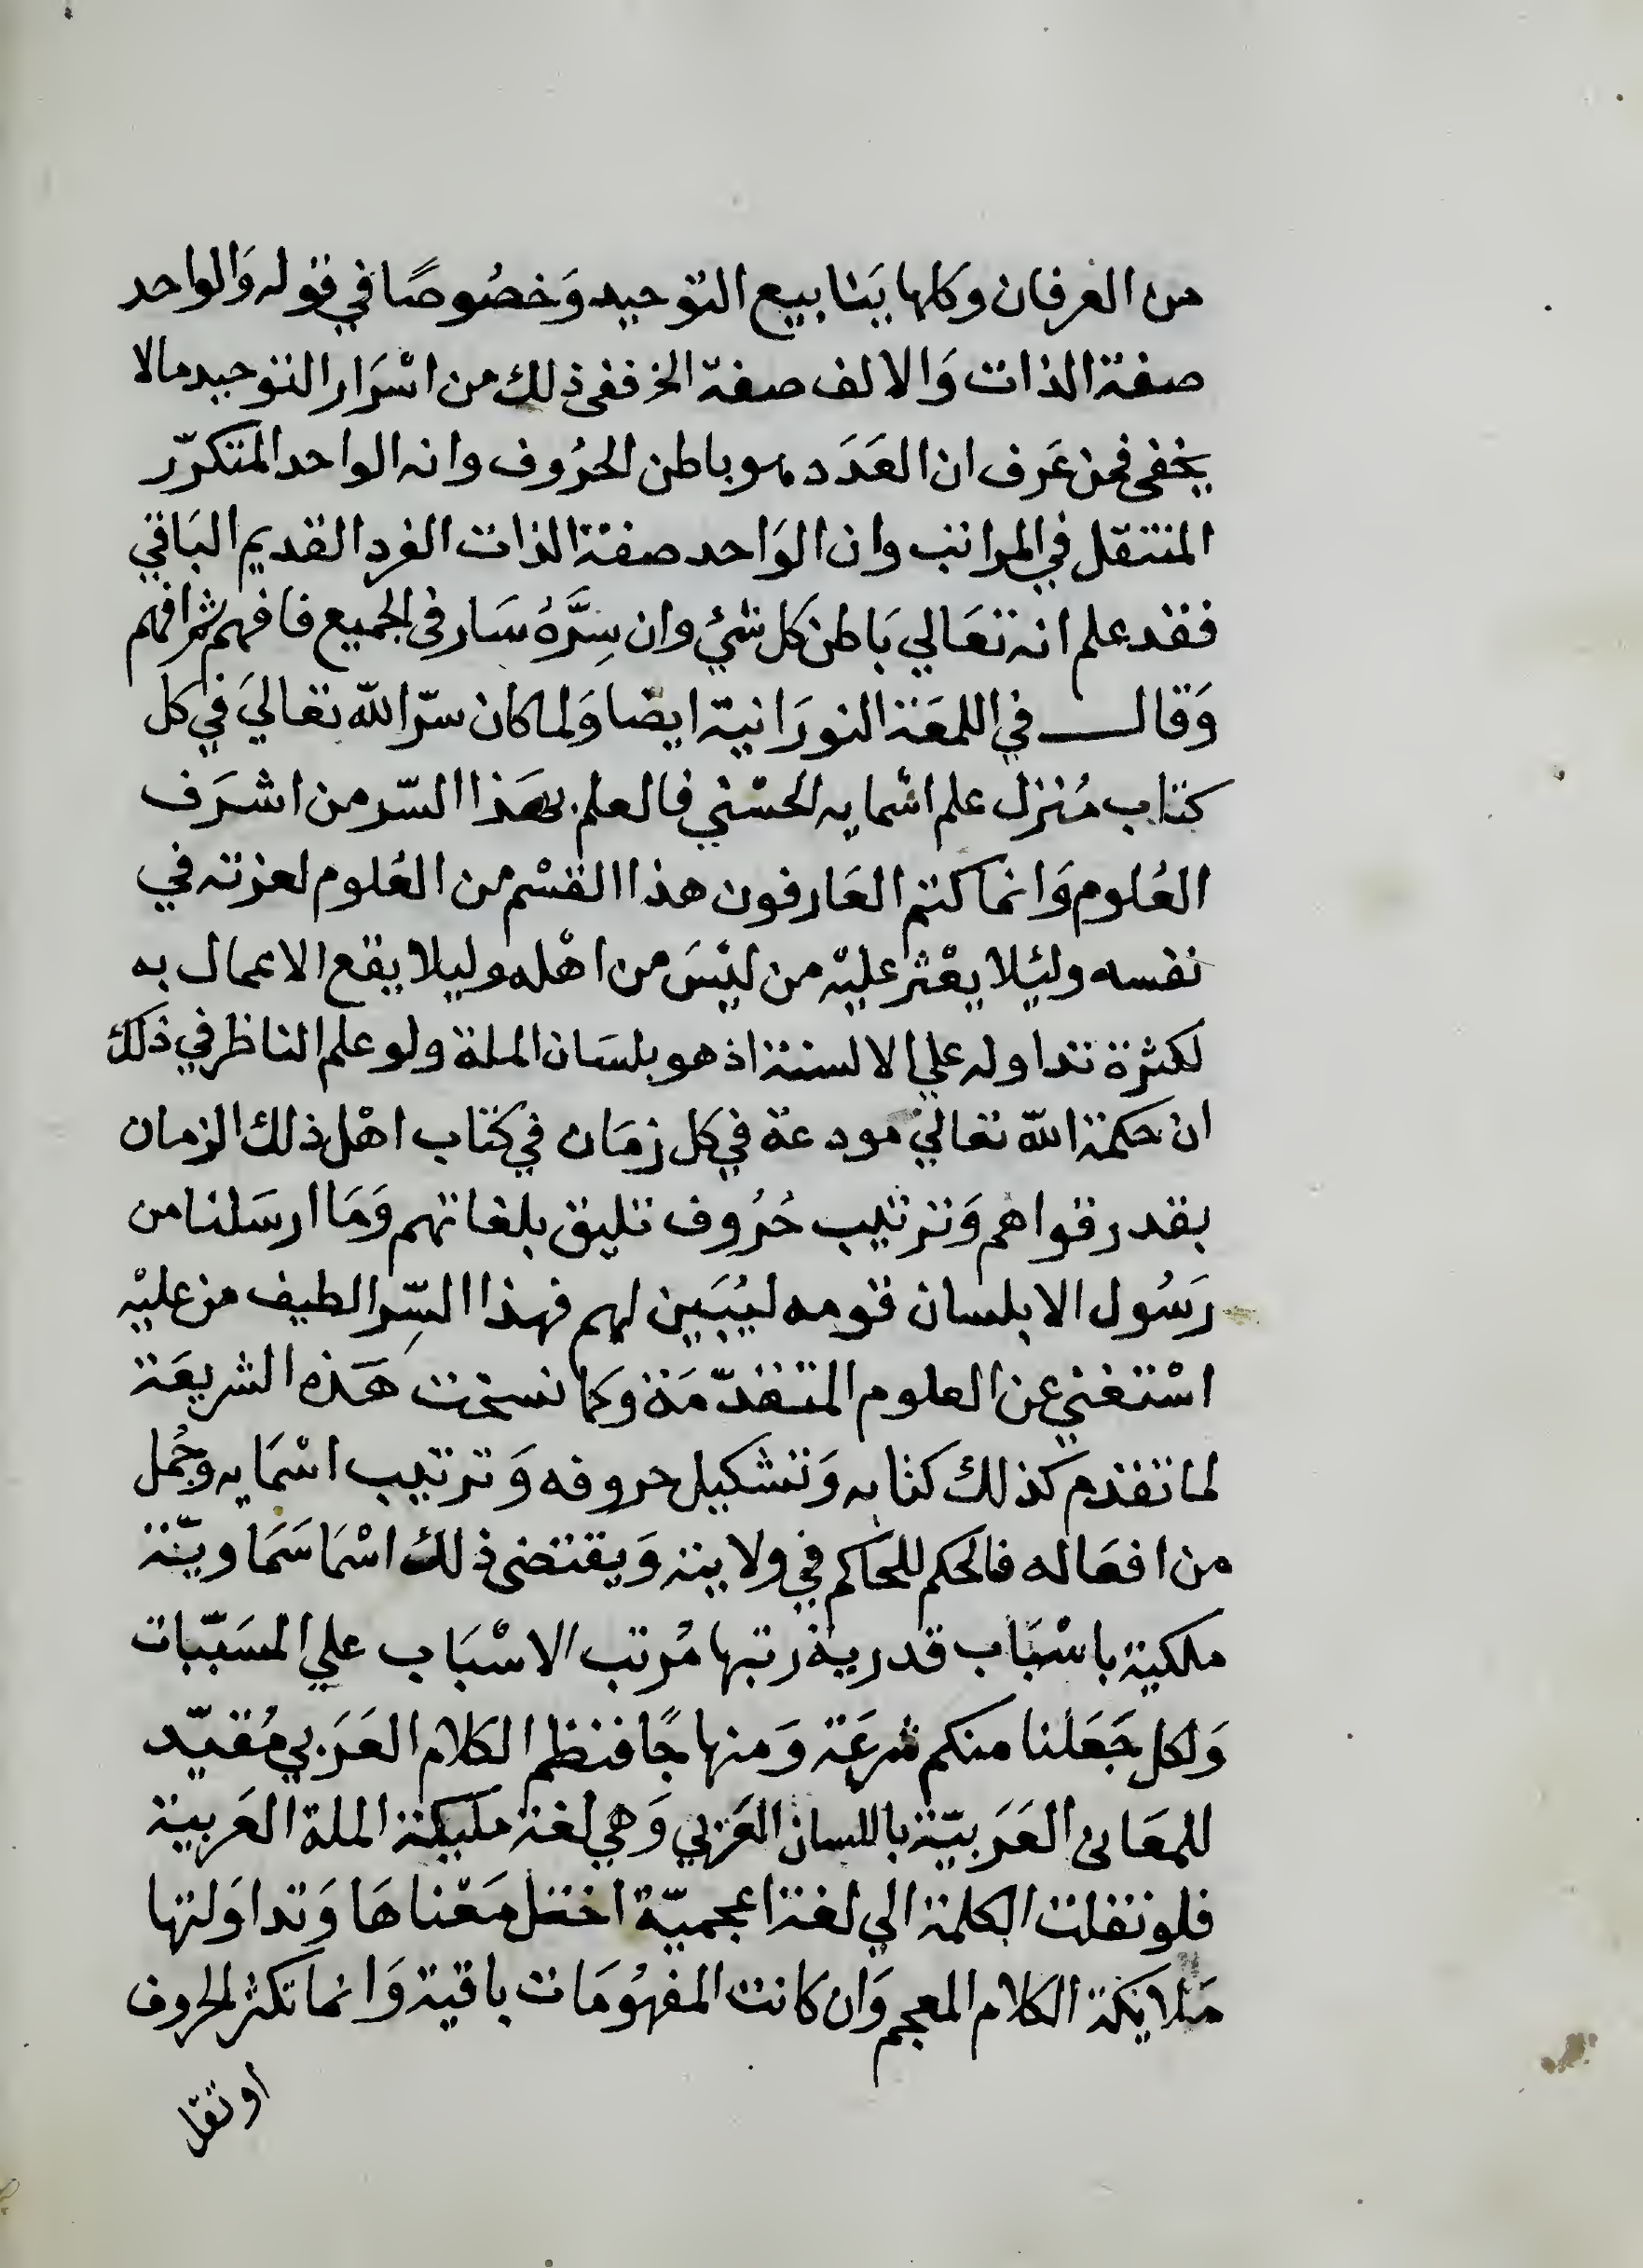 من العرفان وكلها يَنابيع التوحيد وَخصُوصًا في قوله وَالواحد
صفة الذات وَالالف صفة الخ ففى ذلك من اسْرَار التوحيد مالا
يخفى فمن عَرف ان العَدَد هو باطن الحرُوف وانه الواحد المتكرّر
المنتقل في المراتب وان الوَاحد صفة الذات الفرد القديم البَاقي
فقد علم انه تعَالي بَاطن كل شئ وان سِرَّهُ سَار فى الجميع فافهم ثم افهم
وَقال في اللمعَة النورَانية ايضا وَلما كان سرّ الله تعَاليَ في كل
كتاب مُنزل علم اسْمايه الحسْني فالعلم بهَذا السّر من اشرَف
العُلوم وَانما كتم العَارفون هذا القسْم من العُلوم لعزته في
نفسه ولئِلا يعْثر عليْه من ليْسَ من اهْله وليلا يقع الاعمال به
لكثرة تداوله علي الالسنة اذ هو بلسَان الملة ولو علم الناظر في ذلك
ان حكمة الله تعالي مودعة في كل زمَان في كتاب اهْل ذلك الزمان
بقدر قواهم وَترتيب حُرُوف تليق بلغاتهم وَمَا ارسَلنا من
رَسُول الا بلسان قومه ليُبَين لهم فهذا السِّر الطيف من عليْه
اسْتغني عن العلوم المتقدّمَة وكما نسخت هَذه الشريعَة
لما تقدم كذلك كتابه وَتشكيل حروفه وَترتيب اسْمَايه وجُمل
من افعَاله فالحكم للحَاكم في ولايته وَيقتضى ذلك اسْما سَمَاويّة
ملكية باسْبَاب قدرية رتبها مُرتب الاسْبَاب علي المسَبّبات
وَلكل جَعَلنا منكم شرعَة وَمنهاجًا فنظم الكلام العَرَبي مُقيّد
للمعَانى العَرَبيّة باللسان العَرَبي وَهي لغة مليكة الملة العَربية
فلو نقلت الكلمة الي لغة اعجميّة اختل مَعْناهَا وَتداوَلتها
مَلايكة الكلام المعجم وَان كانت المفهُومَات باقية وَانما تكثر الحروف
او تقل